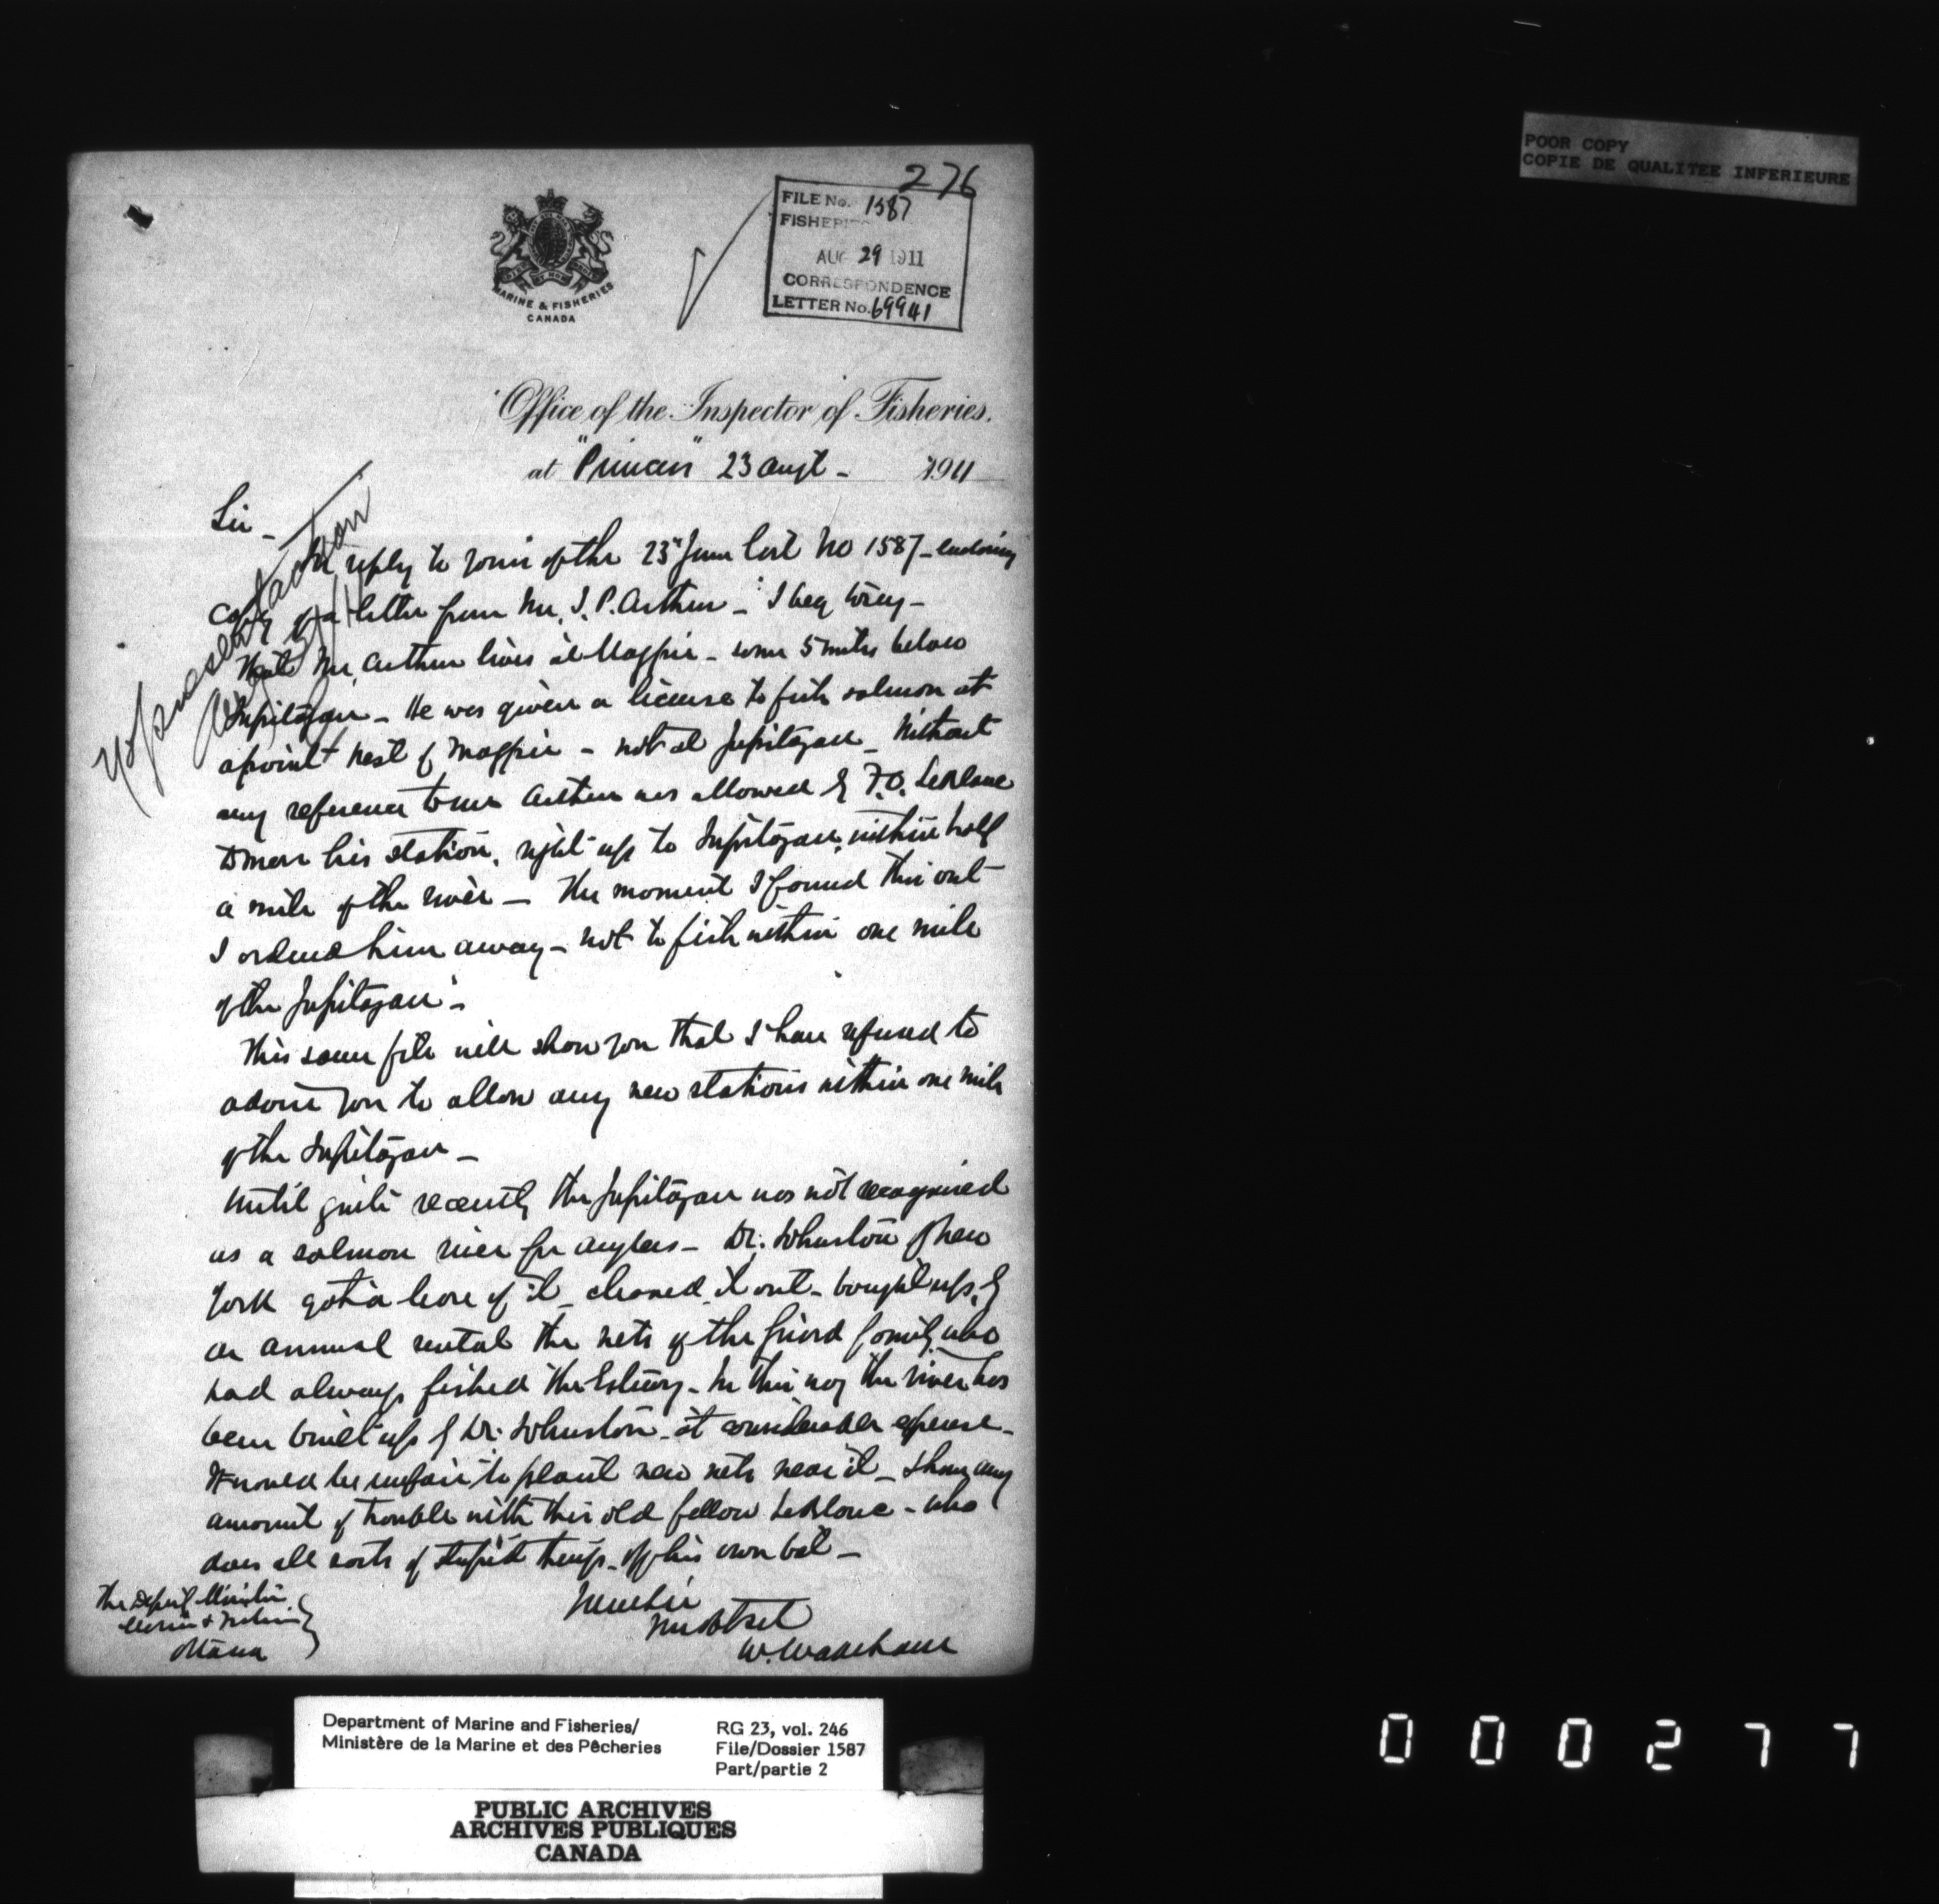 POOR COPY
COPIE DE QUALITEE INFERIEURE
276
FILE No. 1587
FISHERIES
AUG 29 1911
CORRESPONDENCE
LETTER No. 69941
MARINE & FISHERIES
CANADA
Office of the Inspector of Fisheries.
at "Princess" 23 Augt - 1911
Sir -
In reply to yours of the 23rd June last No 1587 - enclosing
copy of a letter from Mr. J. P. Arthur - I beg to say -
that Mr. Arthur lives at Magpie - some 5 miles below
Jupitagan - He was given a license to fish salmon at
a point West of Magpie - not at Jupitagan - Without
any reference to me Arthur was allowed by F.O. LeBlanc
to move his station, right up to Jupitagan, within half
a mile of the river - The moment I found this out
I ordered him away - not to fish within one mile
of the Jupitagan -
This same file will show you that I have refused to
advise you to allow any new stations within one mile
of the Jupitagan -
Until quite recently the Jupitagan was not recognised
as a salmon river for anglers - Dr. Johnston of New
York got a lease of it - cleaned it out - bought up, by
an annual rental the nets of the Girard family who
had always fished the Estuary - In this way the river has
been built up by Dr. Johnston - at considerable expense -
It would be unfair to plant new nets near it - I have any
amount of trouble with this old fellow LeBlanc - who
does all sorts of stupid things - off his own bat -
The Deputy Minister
Marine & Fisheries
Ottawa
Your obt sert
W. Wakeham
Department of Marine and Fisheries/
Ministère de la Marine et des Pêcheries
RG 23, vol. 246
File/Dossier 1587
Part/partie 2
PUBLIC ARCHIVES
ARCHIVES PUBLIQUES
CANADA
000277